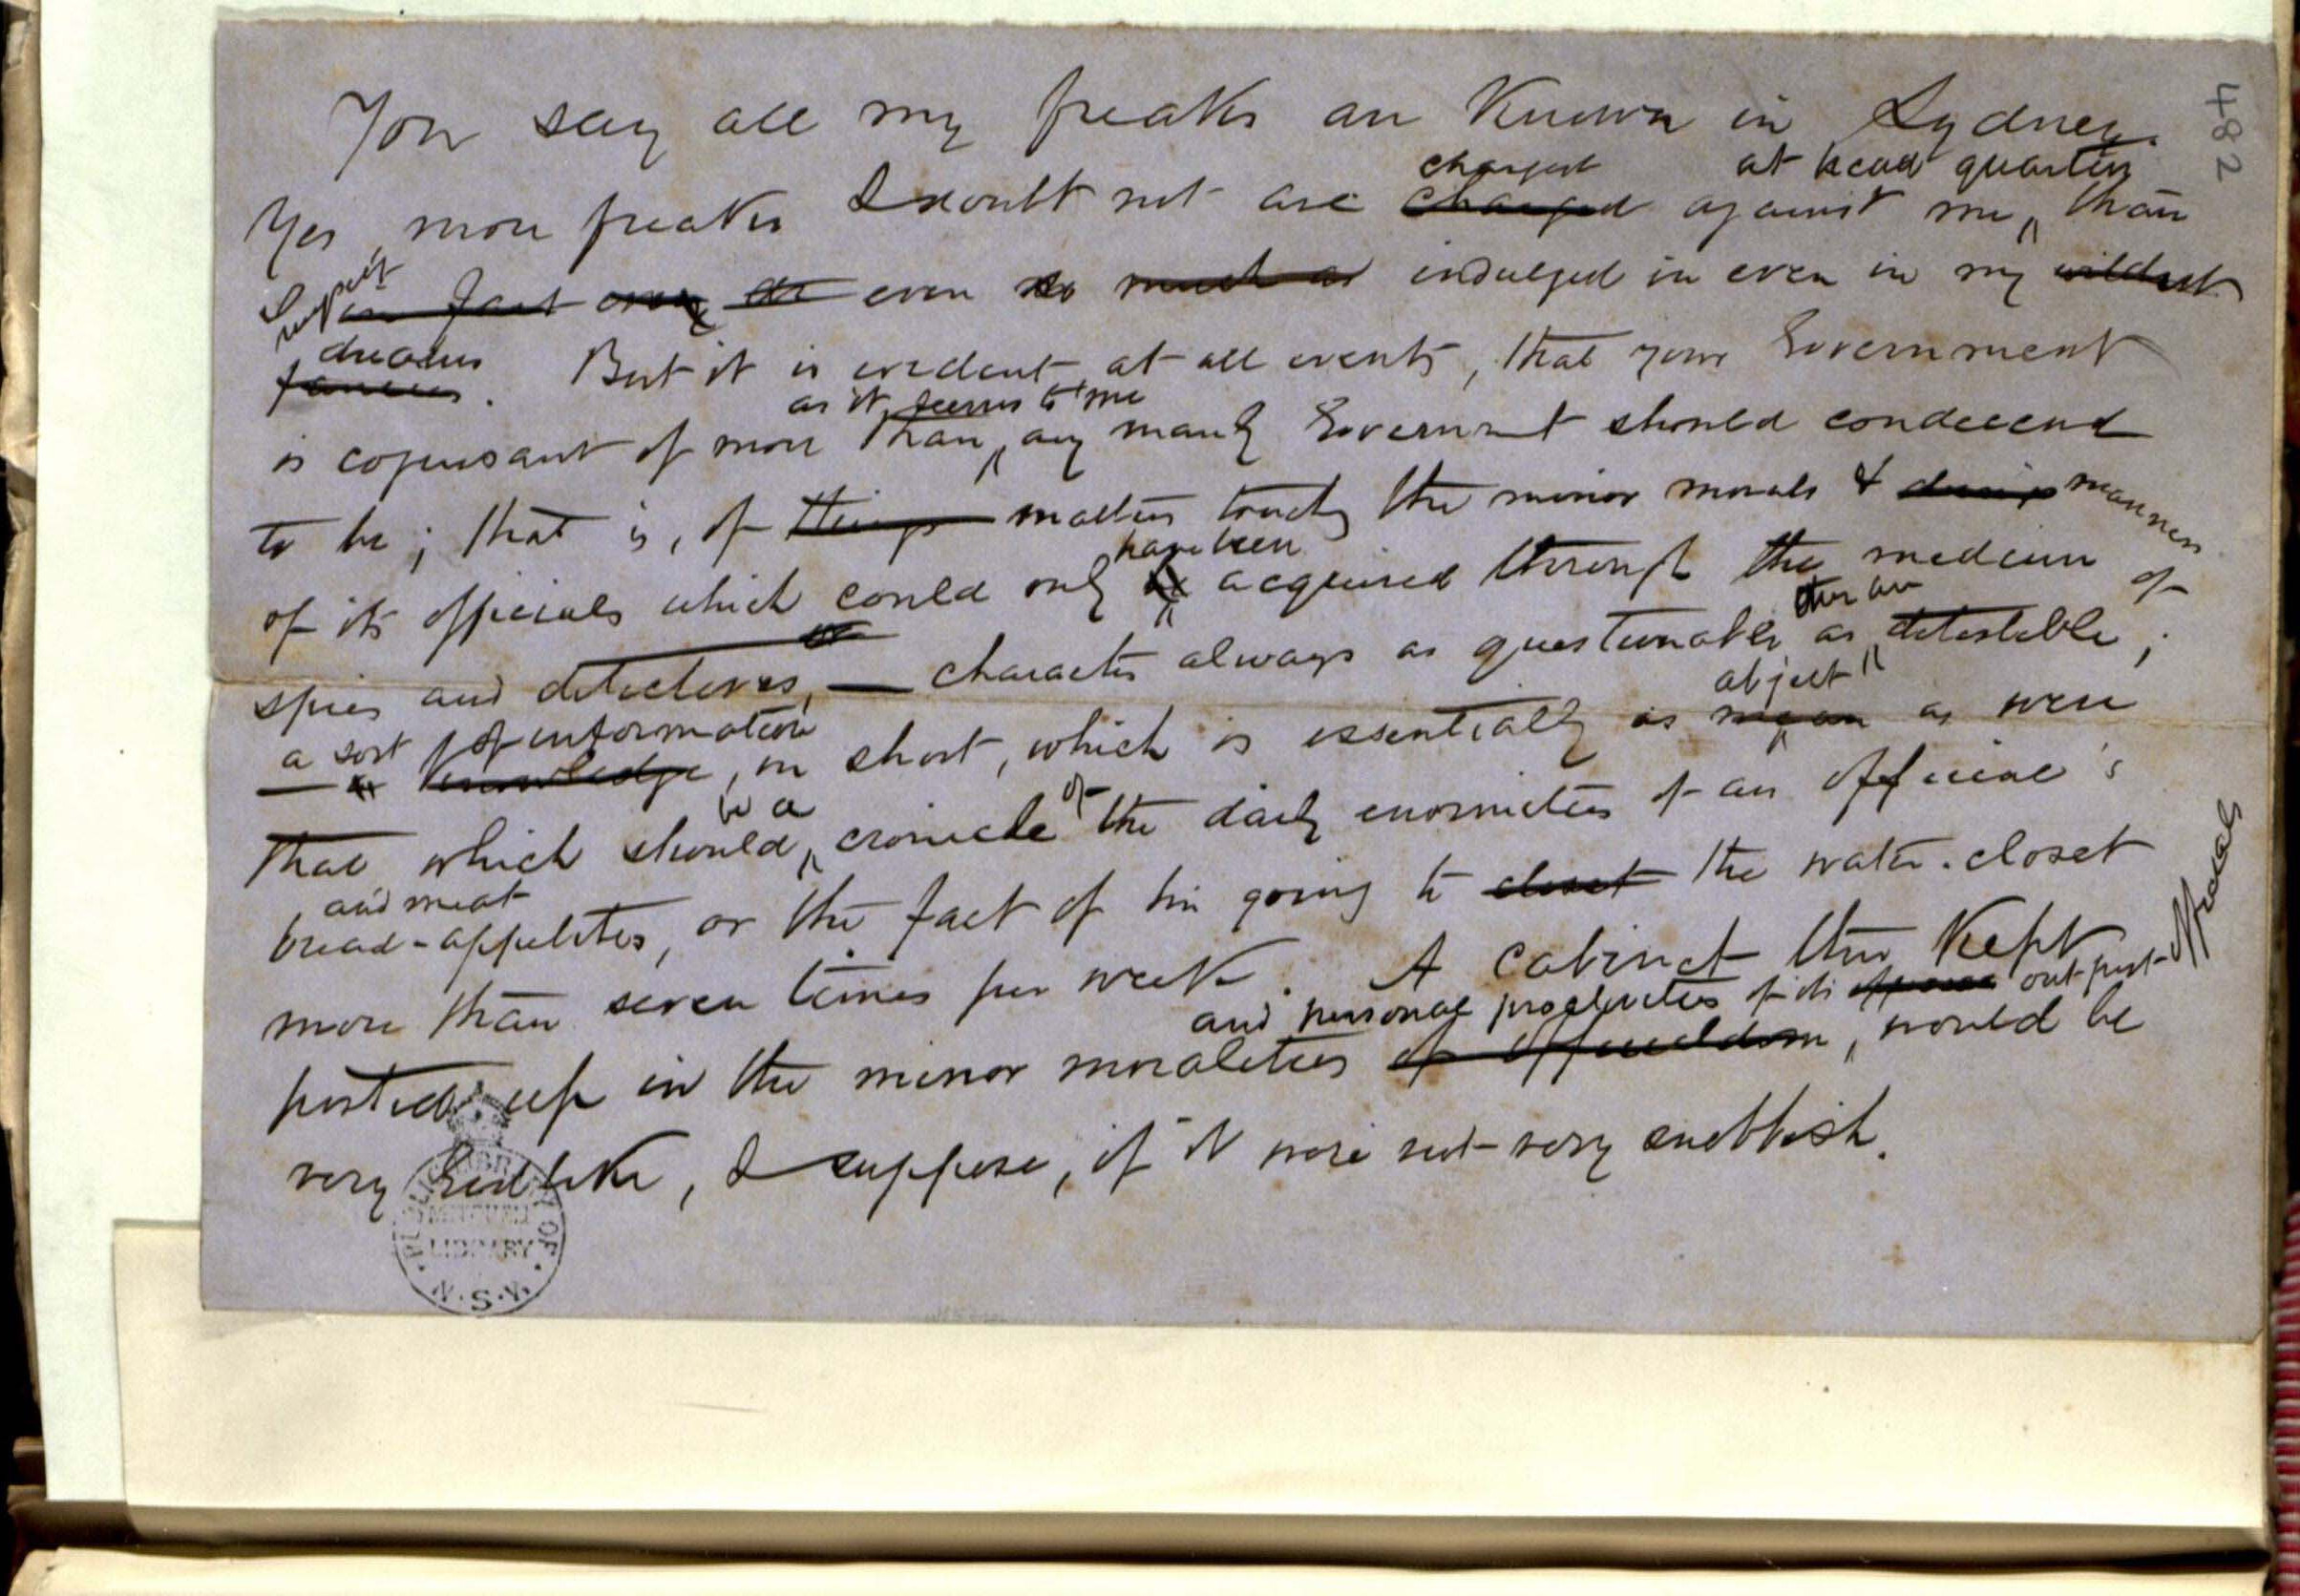 482
You say all my freaks are Known in Sydney.
charged at head quarters
Yes, more freaks I doubt not are charged against me, than
I suspect
in fact even so much as indulged in even in my wildest
dreams
fancies. But it is evident at all events, that your Government
as it seems to me
is cognisant of more than any manly Government should condecend
to be; that is, of things matters touchg the minor morals & manners
have been
of its officials which could only be acquired through the medium of
they are
spies and detectives, — character always as questionable as detestable;
a sort of information abject
— a Knowledge, in short, which is essentially as mean as were
be a of
that which should cronicle the daily enormities of an official's
and meat
bread-appetites, or the fact of his going to closet the water-closet
more than seven times per week. A cabinet thus Kept
and personal proclivities of its out-post
posted up in the minor moralities of officialdom, would be
very Godlike, I suppose, if it were not very snobbish.
PUBLIC LIBRARY OF
MITCHELL
LIBRARY
N.S.W.